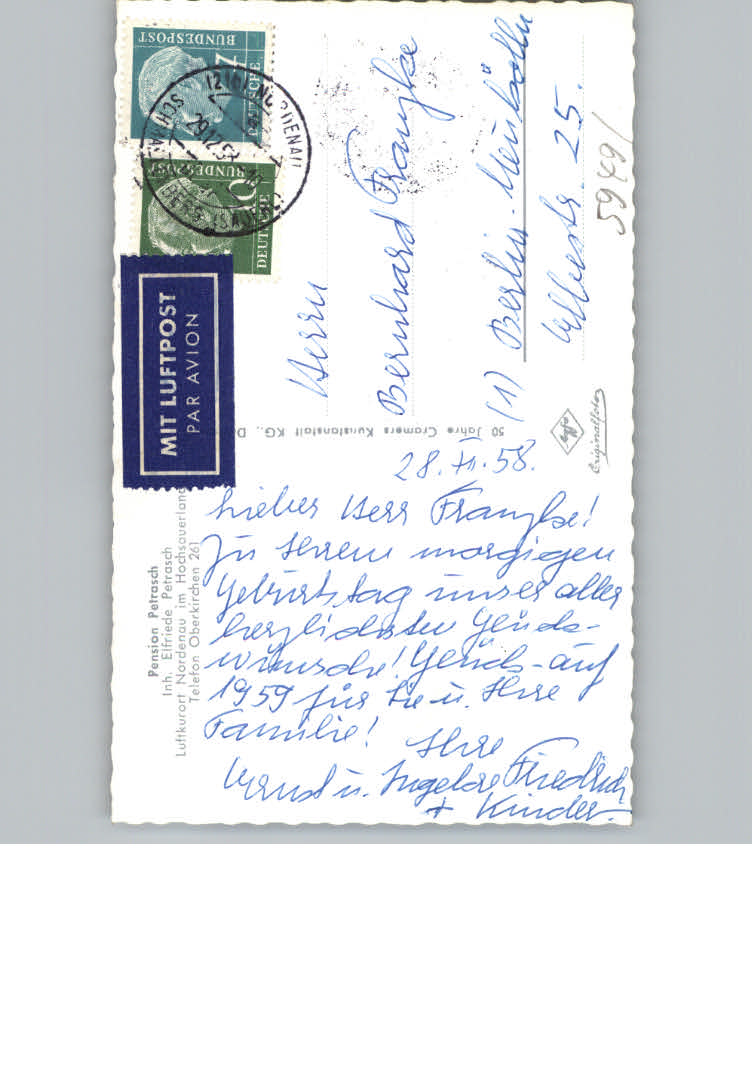 28. XII. 58.
Lieber Herr Franzke!
Zu Ihrem morgigen
Geburtstag unser aller
herzlichsten Glück-
wünsche! Glück-auf
1959 für Sie u. Ihre
Familie! Ihre
Ernst u. Ingelore Friedrich
+ Kinder.
Herrn
Bernhard Franzke
(1) Berlin-Neukölln
25.
5949/
MIT LUFTPOST
PAR AVION
DEUTSCHE
BUNDESPOST
7
DEUTSCHE
BUNDESPOST
NORDENAU
Pension Petrasch
Inh. Elfriede Petrasch
Luftkurort Nordenau im Hochsauerland
Telefon Oberkirchen 261
50 Jahre Cramers Kunstanstalt KG., D
Agfa
Originalfoto